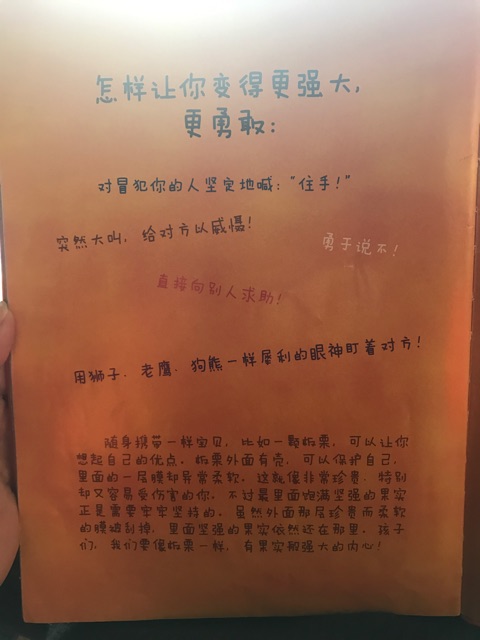 怎样让你变得更强大，
更勇敢：
对冒犯你的人坚定地喊：“住手！”
突然大叫，给对方以威慑！
勇于说不！
直接向别人求助！
用狮子、老鹰、狗熊一样犀利的眼神盯着对方！
随身携带一样宝贝，比如一颗板栗，可以让你
想起自己的优点，板栗外面有壳，可以保护自己，
里面的一层膜却异常柔软，这就像非常珍贵、特别
却又容易受伤害的你，不过最里面饱满坚强的果实
正是需要牢牢坚持的，虽然外面那层珍贵而柔软
的膜被刮掉，里面坚强的果实依然还在那里，孩子
们，我们要像板栗一样，有果实般强大的内心！